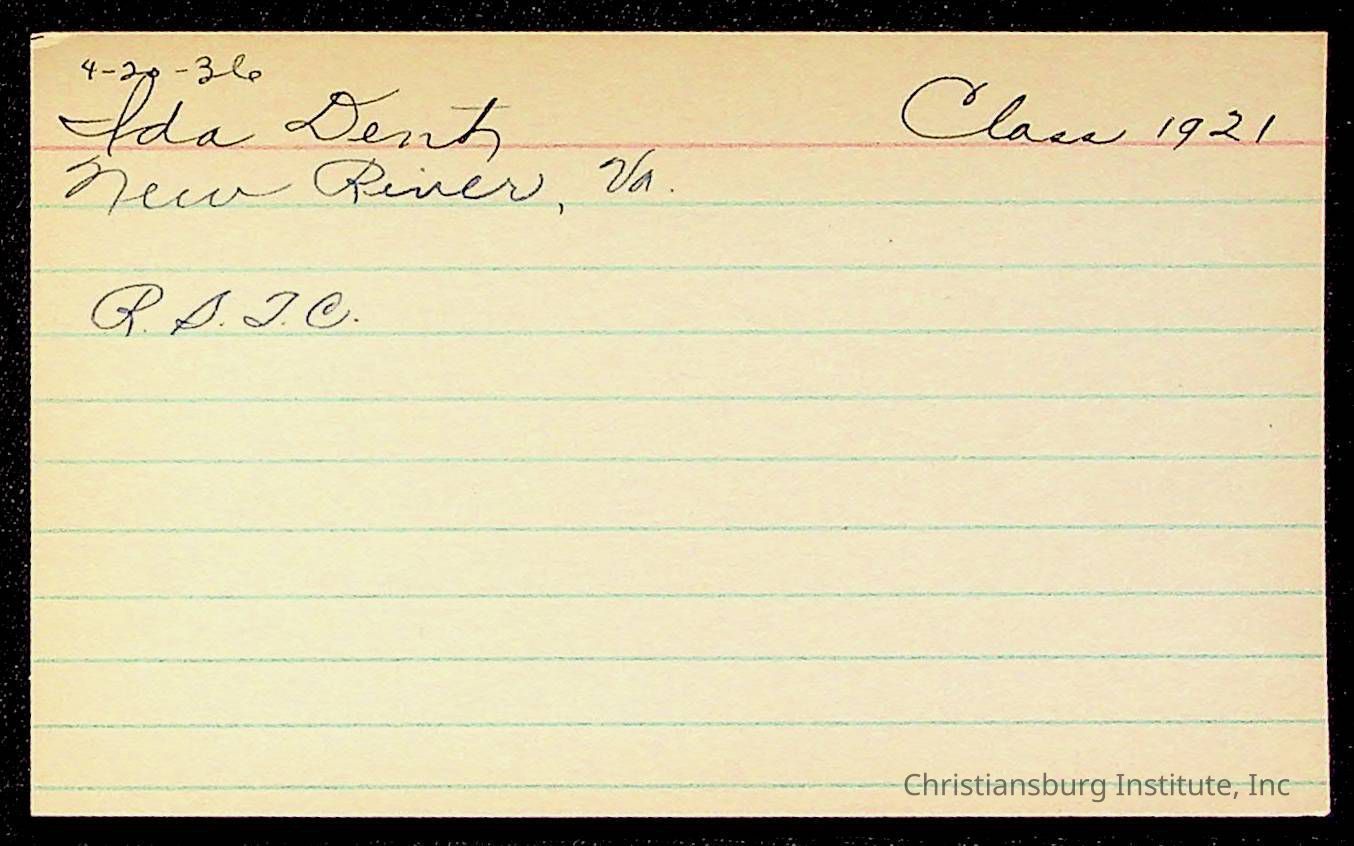 4-20-36
Ida Dent
Class 1921
New River, Va.
R. S. T. C.
Christiansburg Institute, Inc